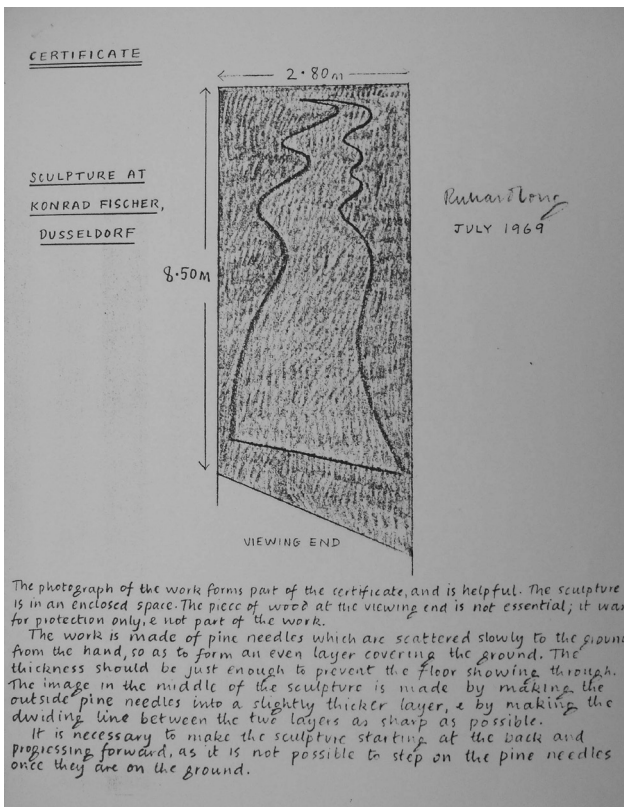 CERTIFICATE
2·80m
SCULPTURE AT
KONRAD FISCHER,
DUSSELDORF
Richard Long
JULY 1969
8·50M
VIEWING END
The photograph of the work forms part of the certificate, and is helpful. The sculpture
is in an enclosed space. The piece of wood at the viewing end is not essential; it was
for protection only, & not part of the work.
The work is made of pine needles which are scattered slowly to the ground
from the hand, so as to form an even layer covering the ground. The
thickness should be just enough to prevent the floor showing through.
The image in the middle of the sculpture is made by making the
outside pine needles into a slightly thicker layer, & by making the
dividing line between the two layers as sharp as possible.
It is necessary to make the sculpture starting at the back and
progressing forward, as it is not possible to step on the pine needles
once they are on the ground.